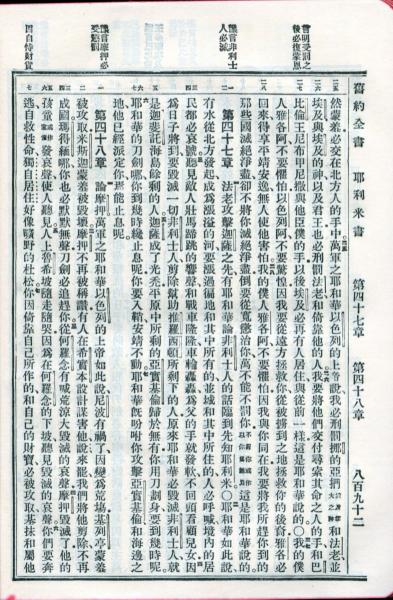 舊約全書 耶利米書 第四十七章 第四十八章 八百九十二
言明受罰之後必復蒙恩
讖言非利士人必滅
讖言摩押必受懲罰
因自恃財貨
然蒙羞必交在北方人的手中萬軍之耶和華以色列的上帝說我必刑罰挪的亞捫和法老並
埃及與埃及的神以及君王也必刑罰法老和倚靠他的人我要將他們交付尋索其命之人的手和巴
比倫王尼布甲尼撒與他臣僕的手以後埃及必再有人居住與從前一樣這是耶和華說的〇我的僕
人雅各阿不要懼怕以色列阿不要驚惶因我要從遠方拯救你從被擄到之地拯救你的後裔雅各必
回來得享平靖安逸無人使他害怕我的僕人雅各阿不要懼怕因我與你同在我要將我所趕你到的
那些國滅絕淨盡卻不將你滅絕淨盡倒要從寬懲治你萬不能不罰你這是耶和華說的
第四十七章 法老攻擊迦薩之先有耶和華論非利士人的話臨到先知耶利米〇耶和華如此說
有水從北方發起成為漲溢的河要漲過遍地和其中所有的並城和其中所住的人必呼喊境內的居
民都必哀號聽見敵人壯馬蹄跳的響聲和戰車隆隆車輪轟轟為父的手就發軟不回頭看顧兒女因
為日子將到要毀滅一切非利士人剪除幫助推羅西頓所剩下的人原來耶和華必毀滅非利士人就
是迦斐託海島餘剩的人迦薩成了光禿平原中所剩的亞實基倫歸於無有你用刀劃身要到幾時呢
耶和華的刀劍哪你到幾時纔止息呢你要入鞘安靖不動耶和華既吩咐你攻擊亞實基倫和海邊之
地他已經派定你焉能止息呢
第四十八章 論摩押萬軍之耶和華以色列的上帝如此說尼波有禍了因變為荒場基列亭蒙羞
被攻取米斯迦蒙羞被毀壞摩押不再被稱讚有人在希實本設計謀害他說來罷我們將他剪除不再
成國瑪得緬哪你也必默默無聲刀劍必追趕你從何羅念有喊荒涼大毀滅的哀聲摩押毀滅了他的
孩童發哀聲使人聽見人上魯希坡隨走隨哭因為在何羅念的下坡聽見毀滅的哀聲你們要奔
逃自救性命獨自居住好像曠野的杜松你因倚靠自己所作的和自己的財寶必被攻取基抹和屬他